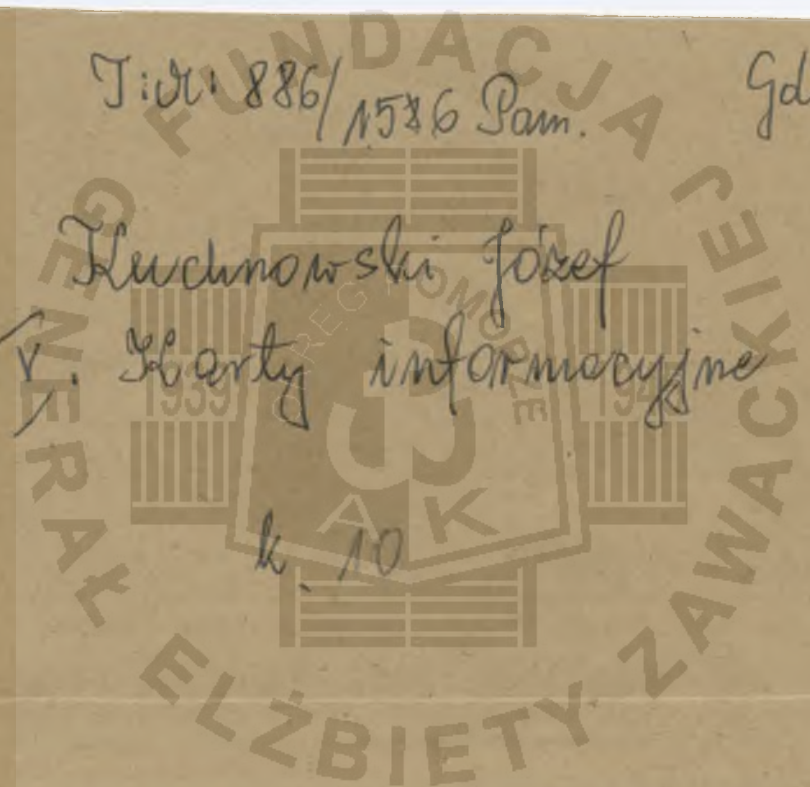 T: 886/1586 Pam. Gd
Kuchnowski Józef
V. Karty informacyjne
k. 10
FUNDACJA GENERAŁ ELŻBIETY ZAWACKIEJ
OKRĘG POMORZE
1939 1945
AK